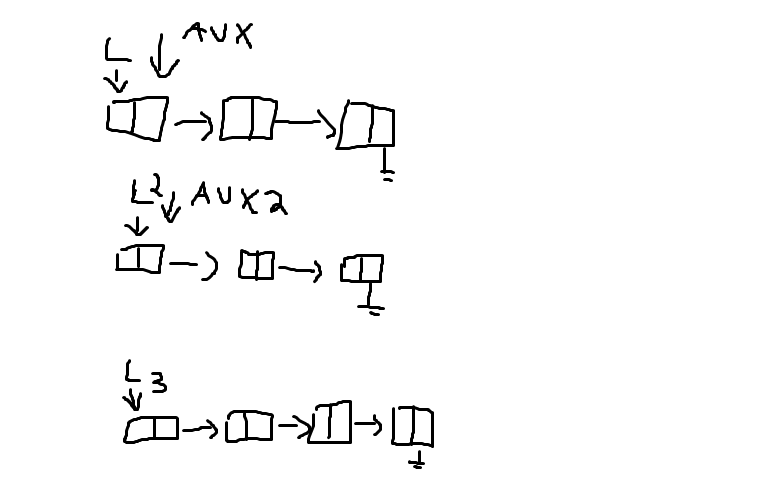 L AUX
L2 AUX2
L3